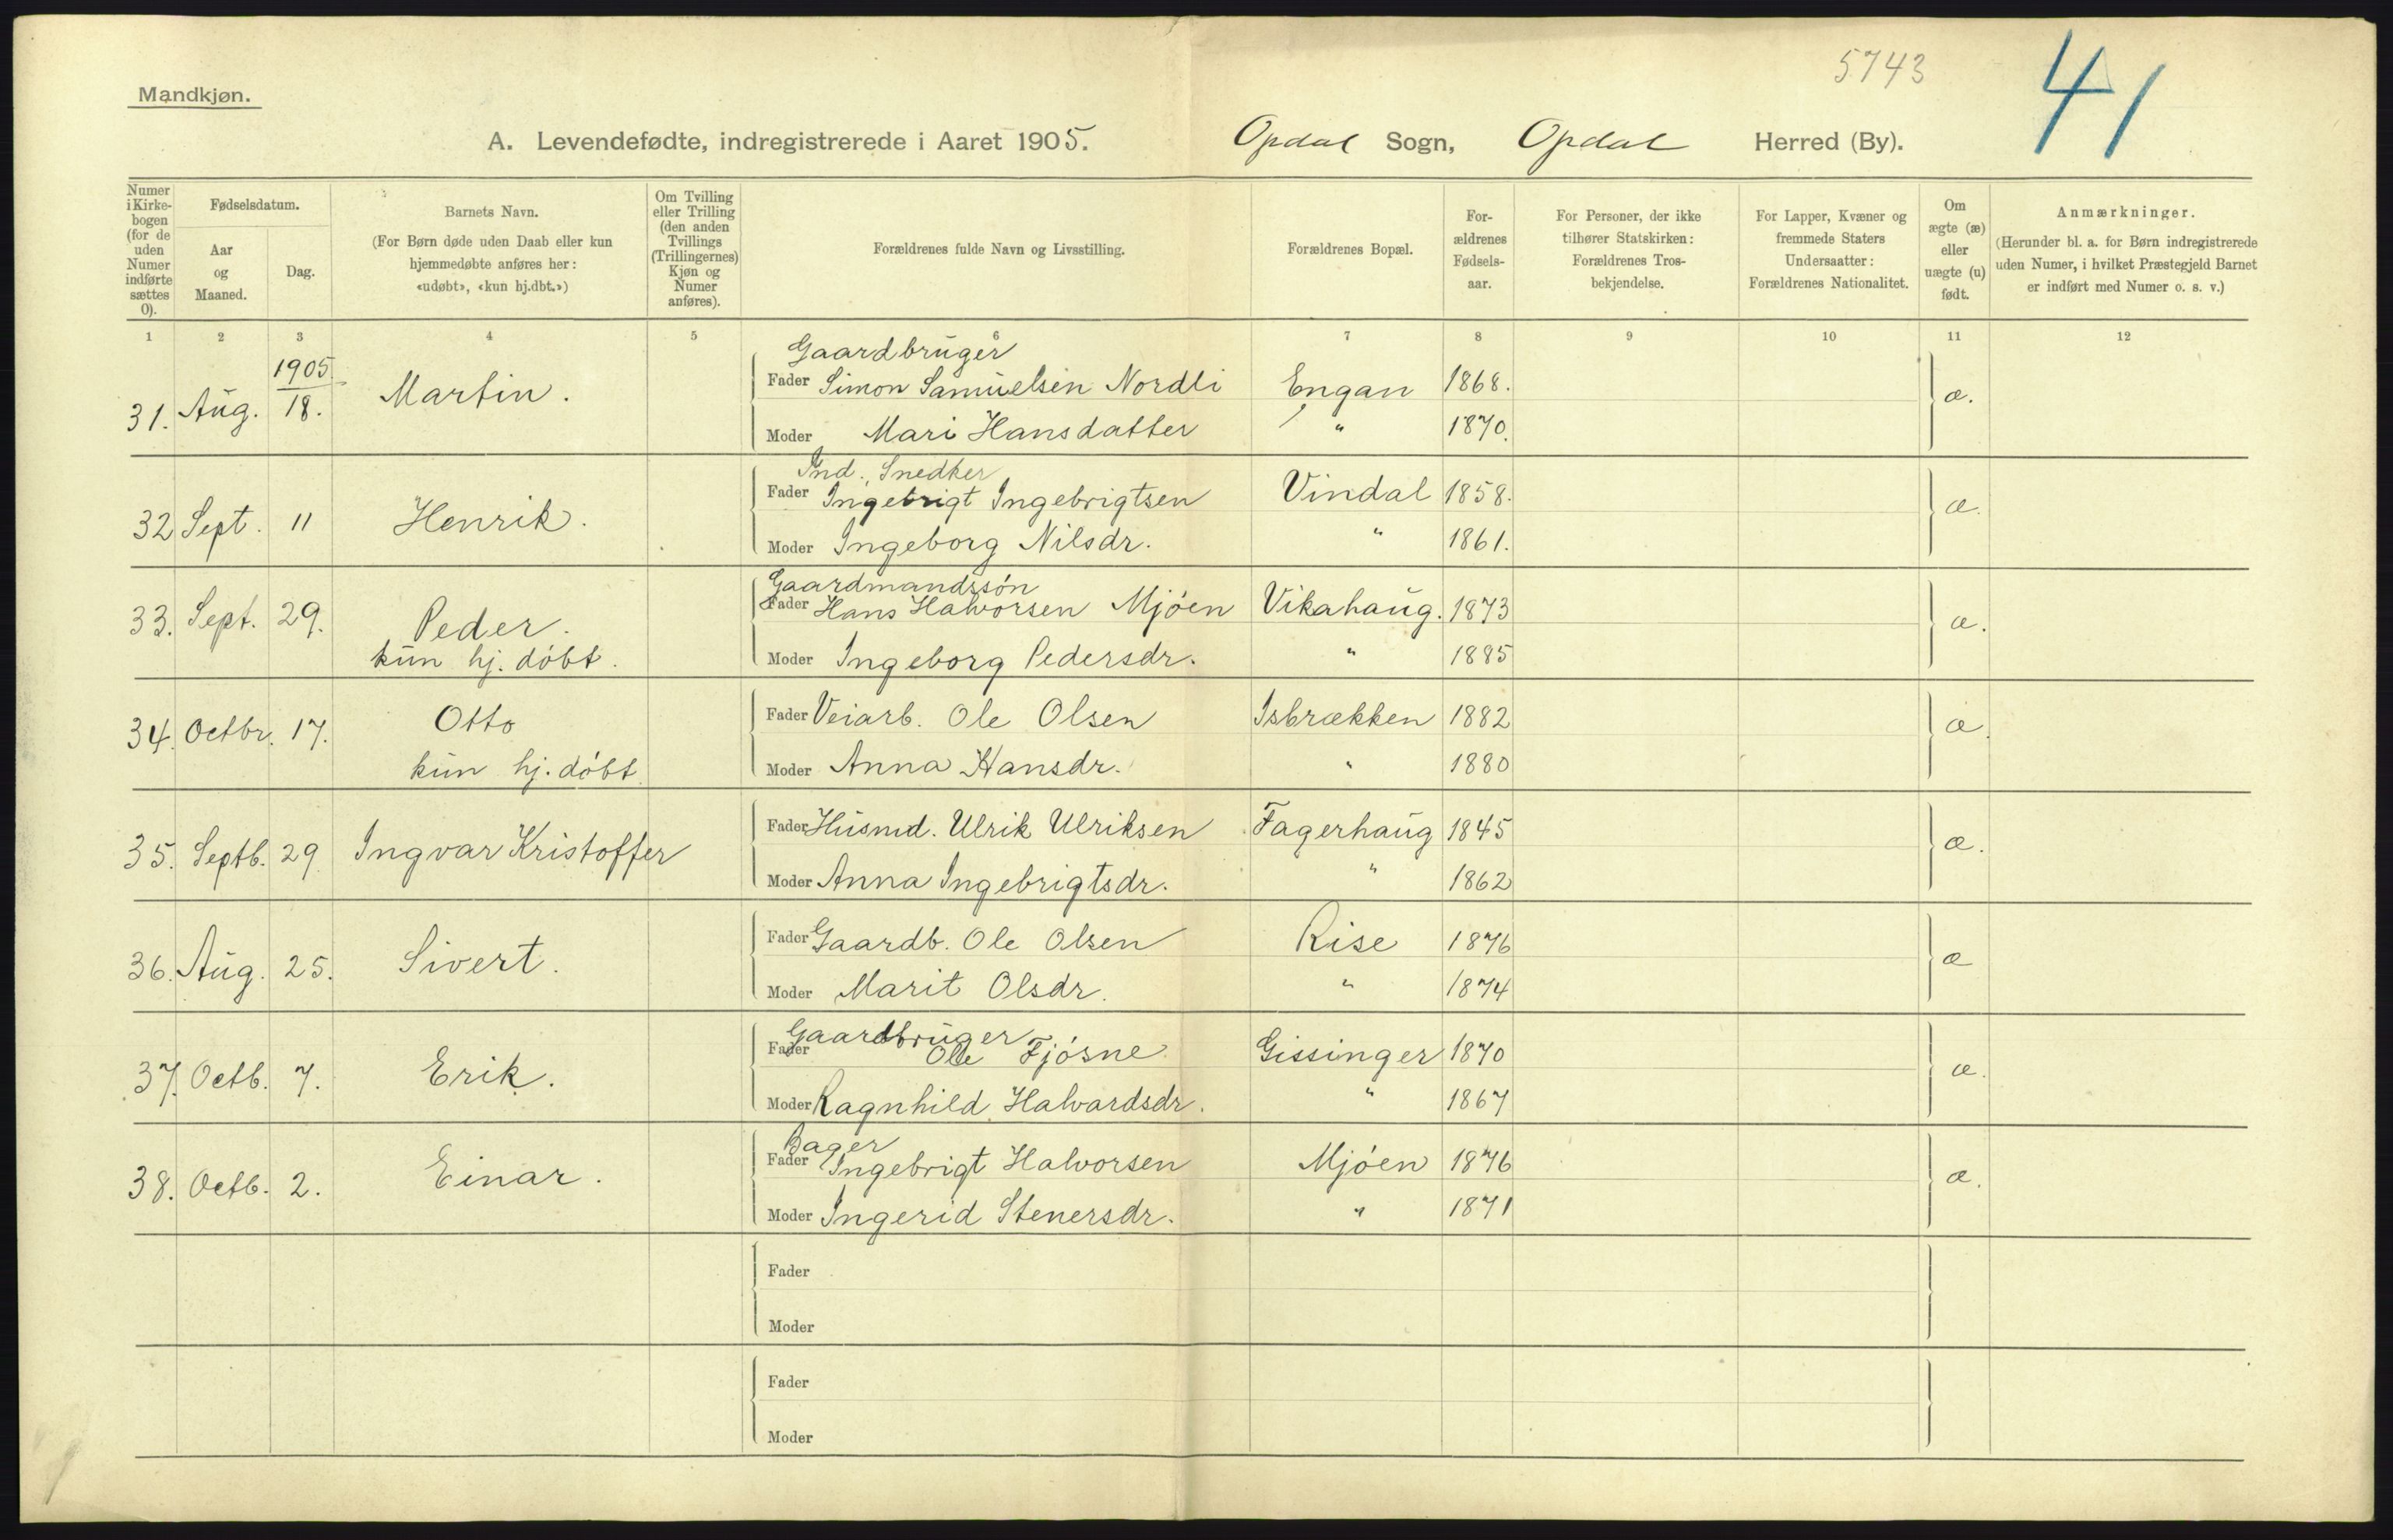 5743
41
Mandkjøn.
A. Levendefødte, indregistrerede i Aaret 1905. Opdal Sogn, Opdal Herred (By).
Numer i Kirkebogen (for de uden Numer indførte sættes 0).
Fødselsdatum.
Aar og Maaned.
Dag.
Barnets Navn.
(For Børn døde uden Daab eller kun hjemmedøbte anføres her: «udøbt», «kun hj.dbt.»)
Om Tvilling eller Trilling (den anden Tvillings (Trillingernes) Kjøn og Numer anføres).
Forældrenes fulde Navn og Livsstilling.
Forældrenes Bopæl.
Forældrenes Fødselsaar.
For Personer, der ikke tilhører Statskirken: Forældrenes Trosbekjendelse.
For Lapper, Kvæner og fremmede Staters Undersaatter: Forældrenes Nationalitet.
Om ægte (æ) eller uægte (u) født.
Anmærkninger.
(Herunder bl. a. for Børn indregistrerede uden Numer, i hvilket Præstegjeld Barnet er indført med Numer o. s. v.)
1 2 3 4 5 6 7 8 9 10 11 12
1905
31. Aug. 18. Martin. Gaardbruger
Fader Simon Samuelsen Nordli Engan 1868. æ.
Moder Mari Hansdatter " 1870.
32 Sept. 11 Henrik. Ind., Snedker
Fader Ingebrigt Ingebrigtsen Vindal 1858. æ.
Moder Ingeborg Nilsdr. " 1861.
33. Sept. 29. Peder. Gaardmandssón
Fader Hans Halvorsen Mjóen Vikahaug. 1873 æ.
kun hj. dóbt. Moder Ingeborg Pedersdr. " 1885
34. Octbr. 17. Otto Fader Veiarb. Ole Olsen Isbrækken 1882 æ.
kun hj. dóbt. Moder Anna Hansdr. " 1880
35. Septb. 29. Ingvar Kristoffer Fader Husmd. Ulrik Ulriksen Fagerhaug 1845 æ.
Moder Anna Ingebrigtsdr. " 1862
36. Aug. 25. Sivert. Fader Gaardb. Ole Olsen Rise 1876 æ
Moder Marit Olsdr. " 1874
37. Octb. 7. Erik. Gaardbruger
Fader Ole Fjósne Gissinger 1870 æ.
Moder Ragnhild Halvardsdr. " 1867
38. Octb. 2. Einar. Bager
Fader Ingebrigt Halvorsen Mjóen 1876 æ.
Moder Ingerid Stenersdr. " 1871
Fader
Moder
Fader
Moder